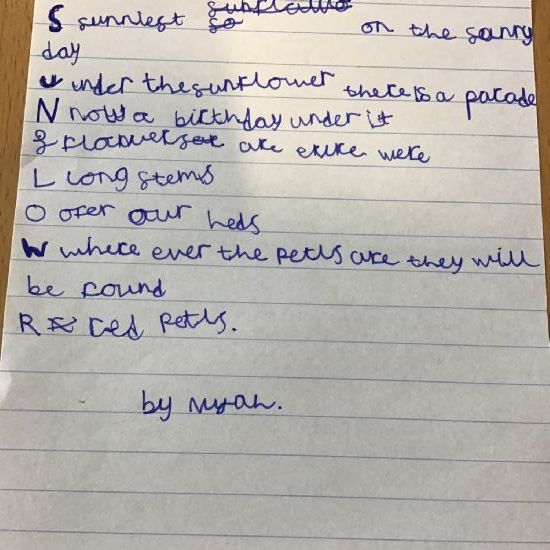 S sunniest on the sanny
day
U under the sunflower there is a parade
N now a birthday under it
F flowers are evrre were
L long stems
O ofer our heds
W where ever the petls are they will
be found
R red petls.
by Nyah.